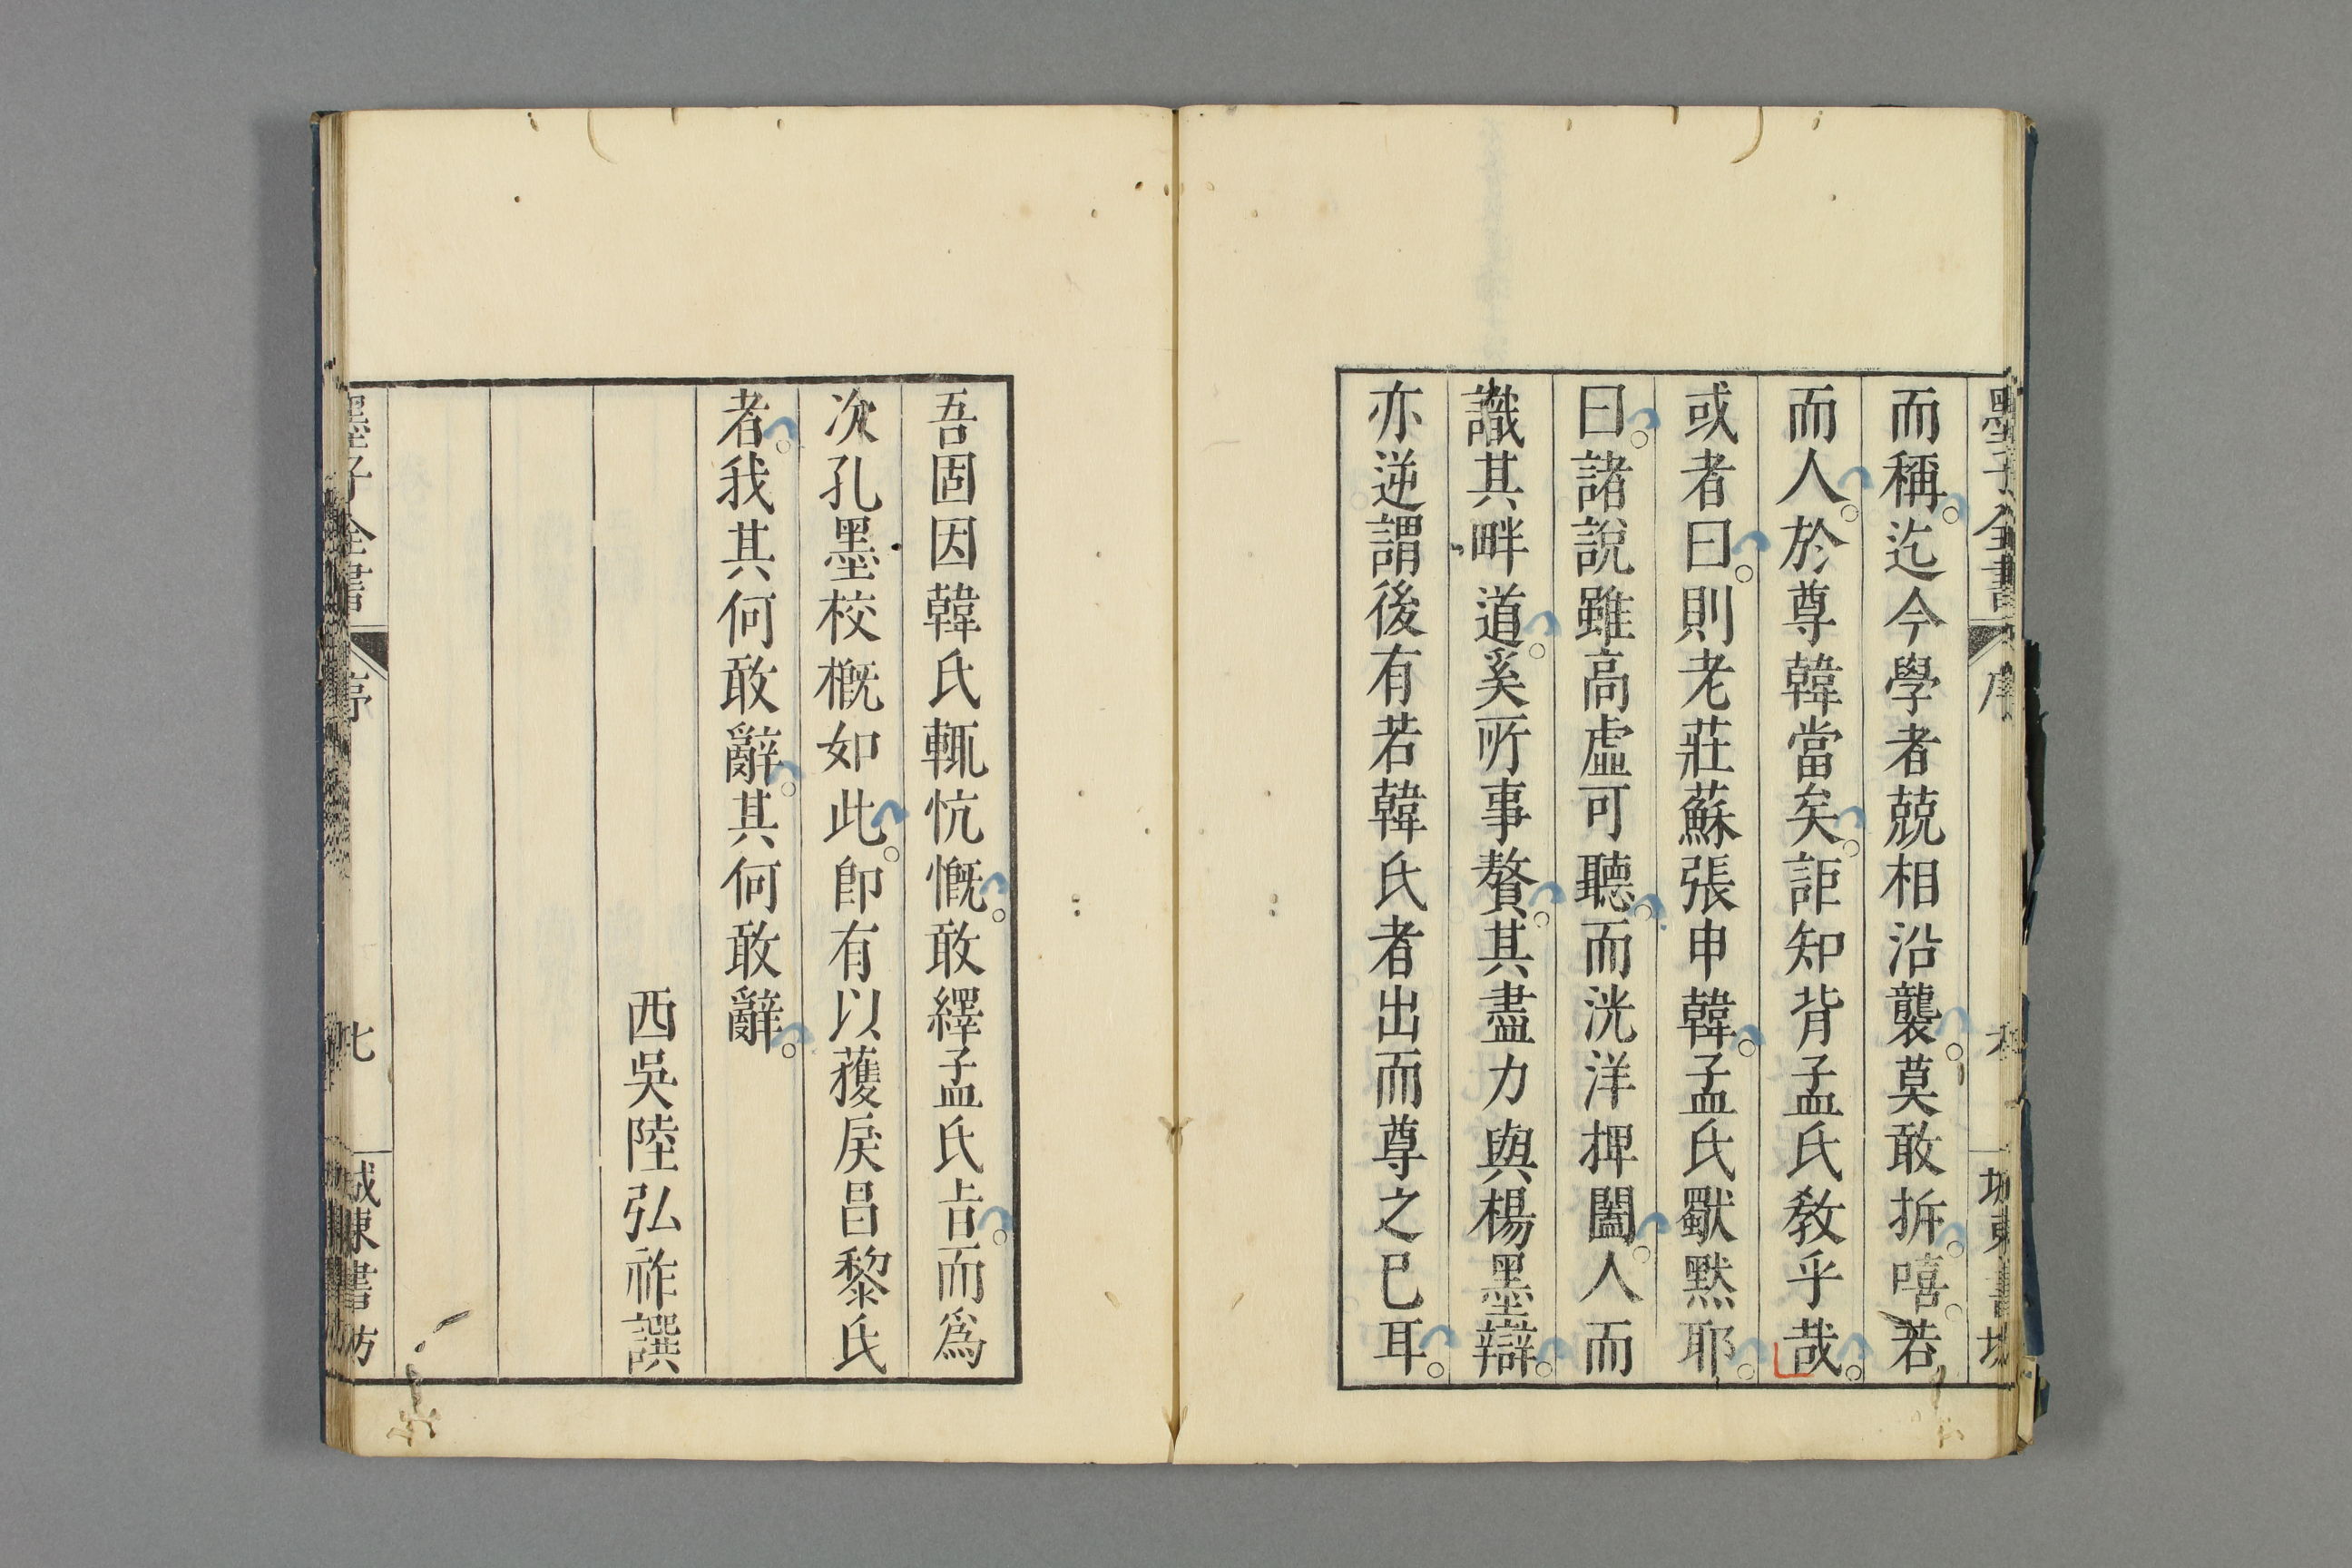 墨子全書 序
而稱迄今學者兢相沿襲莫敢拆嘻若
而人於尊韓當矣詎知背孟氏教乎哉
或者曰則老莊蘇張申韓孟氏猒黙耶
曰諸說雖高虛可聽而洸洋捭闔人而
識其畔道奚所事贅其盡力與楊墨辯
亦逆謂後有若韓氏者出而尊之已耳
吾固因韓氏輒忼慨敢繹孟氏㫖而爲
次孔墨校槪如此卽有以蒦戾昌黎氏
者我其何敢辭其何敢辭
西吳陸弘祚譔
墨子全書 序 七 城東書坊